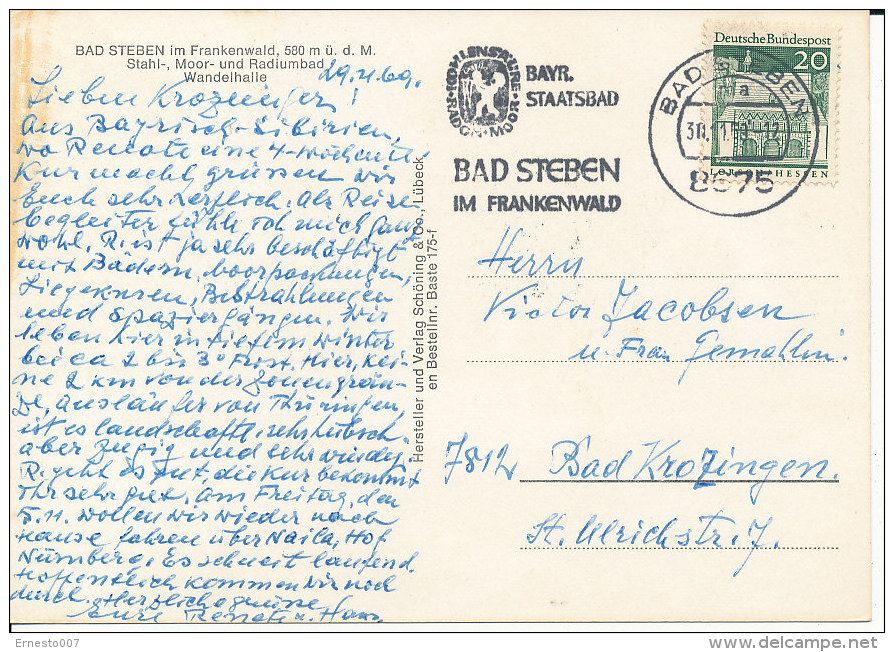 BAD STEBEN im Frankenwald, 580 m ü. d. M.
Stahl-, Moor- und Radiumbad
Wandelhalle
29.11.69.
Lieben Krozinger!
Aus Bayrisch-Sibirien,
wo Renate eine 4-wöchentl
Kur macht grüssen wir
Euch sehr herzlich. Als Reise-
begleiter fühle ich mich ganz
wohl. R. ist ja sehr beschäftigt
mit Bädern, Moorpackungen,
Liegekuren, Bestrahlungen
und Spaziergängen. Wir
leben hier in tiefem Winter
bei ca 2 bis 3° Frost. Hier, kei-
ne 2 km von der Zonengren-
ze, Ausläufer von Thüringen,
ist es landschaftl. sehr hübsch.
aber zugig und sehr windig.
R. geht es gut, die Kur bekommt
ihr sehr gut. Am Freitag, den
5.11. wollen wir wieder nach
Hause fahren über Naila, Hof
Nürnberg. Es schneit laufend.
Hoffentlich kommen wir noch
durch. Herzliche Grüsse
Eure Renate u. Hans
Hersteller und Verlag Schöning & Co., Lübeck
en Bestellnr. Baste 175-f
KOHLENSÄURE
RADON • MOOR
BAYR.
STAATSBAD
BAD STEBEN
IM FRANKENWALD
BAD STEBEN
a
8675
Deutsche Bundespost
20
LORSCH/HESSEN
Herrn
Victor Jacobsen
u. Frau Gemahlin!
7812 Bad Krozingen.
St. Ulrichstr. 7.
Ernesto007
delcampe.net